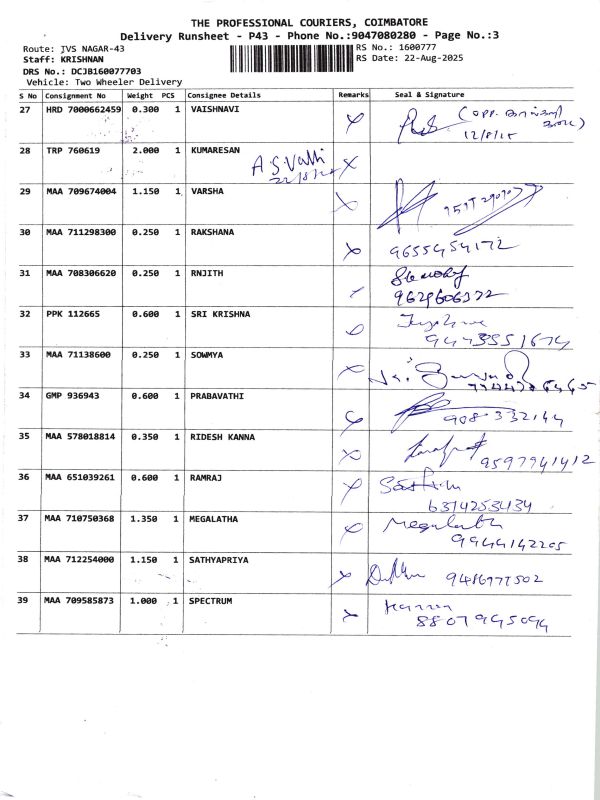 THE PROFESSIONAL COURIERS, COIMBATORE
Delivery Runsheet - P43 - Phone No.:9047080280 - Page No.:3
Route: JVS NAGAR-43 RS No.: 1600777
Staff: KRISHNAN RS Date: 22-Aug-2025
DRS No.: DCJB160077703
Vehicle: Two Wheeler Delivery
S No Consignment No Weight PCS Consignee Details Remarks Seal & Signature
27 HRD 7000662459 0.300 1 VAISHNAVI
12/8/15
28 TRP 760619 2.000 1 KUMARESAN
A.S.Valli
29 MAA 709674004 1.150 1 VARSHA
30 MAA 711298300 0.250 1 RAKSHANA
9655454172
31 MAA 708306620 0.250 1 RNJITH
9629606372
32 PPK 112665 0.600 1 SRI KRISHNA
33 MAA 71138600 0.250 1 SOWMYA
34 GMP 936943 0.600 1 PRABAVATHI
35 MAA 578018814 0.350 1 RIDESH KANNA
9597941412
36 MAA 651039261 0.600 1 RAMRAJ
6374253434
37 MAA 710750368 1.350 1 MEGALATHA
Megalatha
9944142205
38 MAA 712254000 1.150 1 SATHYAPRIYA
9486977502
39 MAA 709585873 1.000 1 SPECTRUM
8807945094